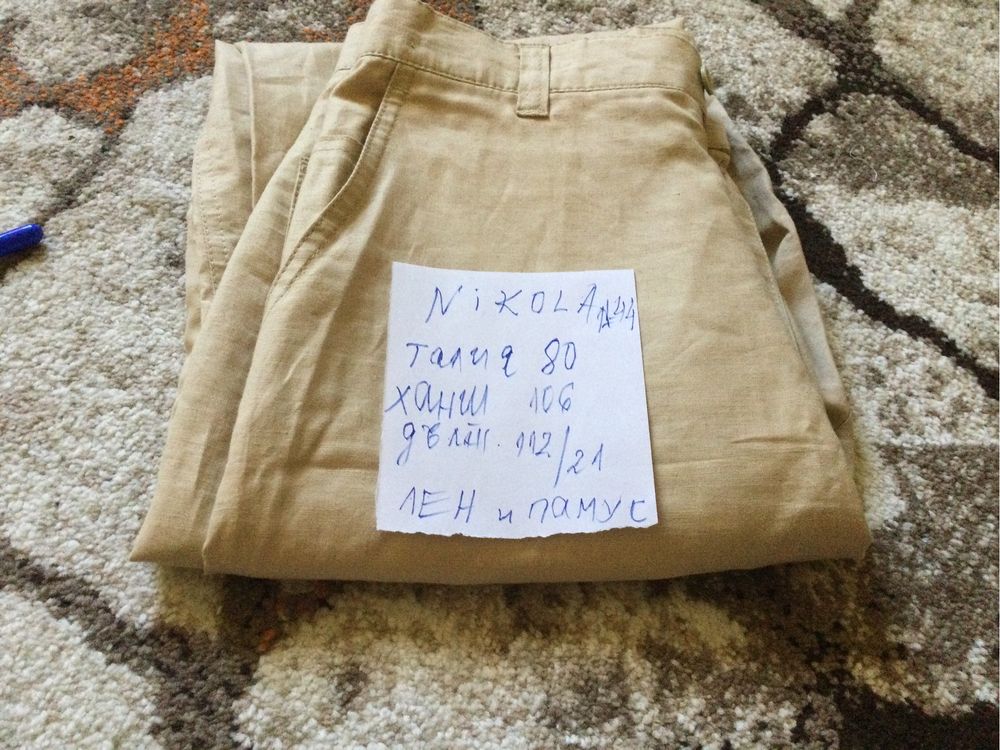 NiKOLA 1444
талия 80
ханш 106
дълж. 112/21
ЛЕН и памус